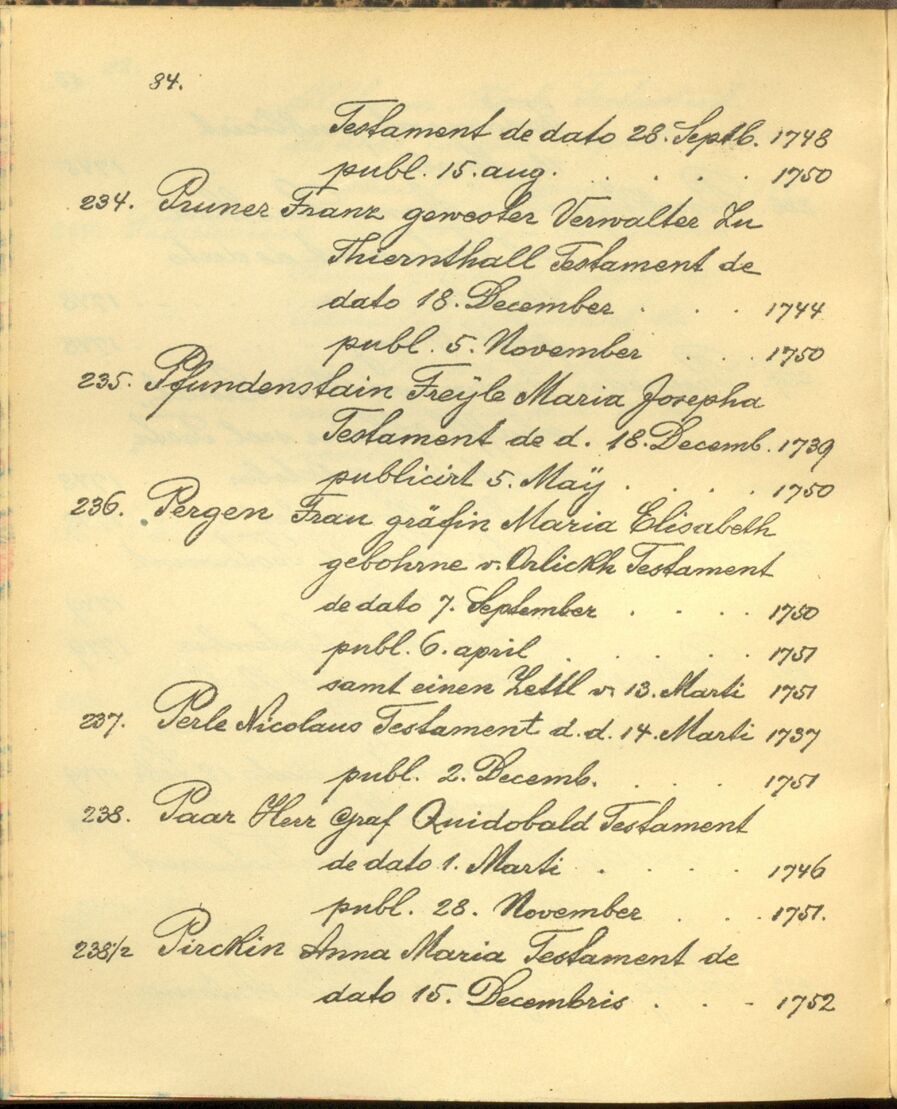 84.
Testament de dato 28. Septb. 1748
publ. 15. aug. . . . . 1750
234. Pruner Franz gewester Verwalter Zu
Thiernthall Testament de
dato 18. December . . . 1744
publ. 5. November . . . 1750
235. Pfundenstain Freÿle Maria Josepha
Testament de d. 18. Decemb. 1739
publicirt 5. Maÿ . . . . 1750
236. Pergen Frau gräfin Maria Elisabeth
gebohrne v. Orlickh Testament
de dato 7. September . . . . 1750
publ. 6. april . . . . . 1751
samt einen Zettl v. 13. Marti 1751
237. Perle Nicolaus Testament d. d. 14. Marti 1737
publ. 2. Decemb. . . . . 1751
238. Paar Herr Graf Quidobald Testament
de dato 1. Marti . . . . 1746
publ. 28. November . . . 1751.
238 1/2 Pirckin Anna Maria Testament de
dato 15. Decembris . . - 1752